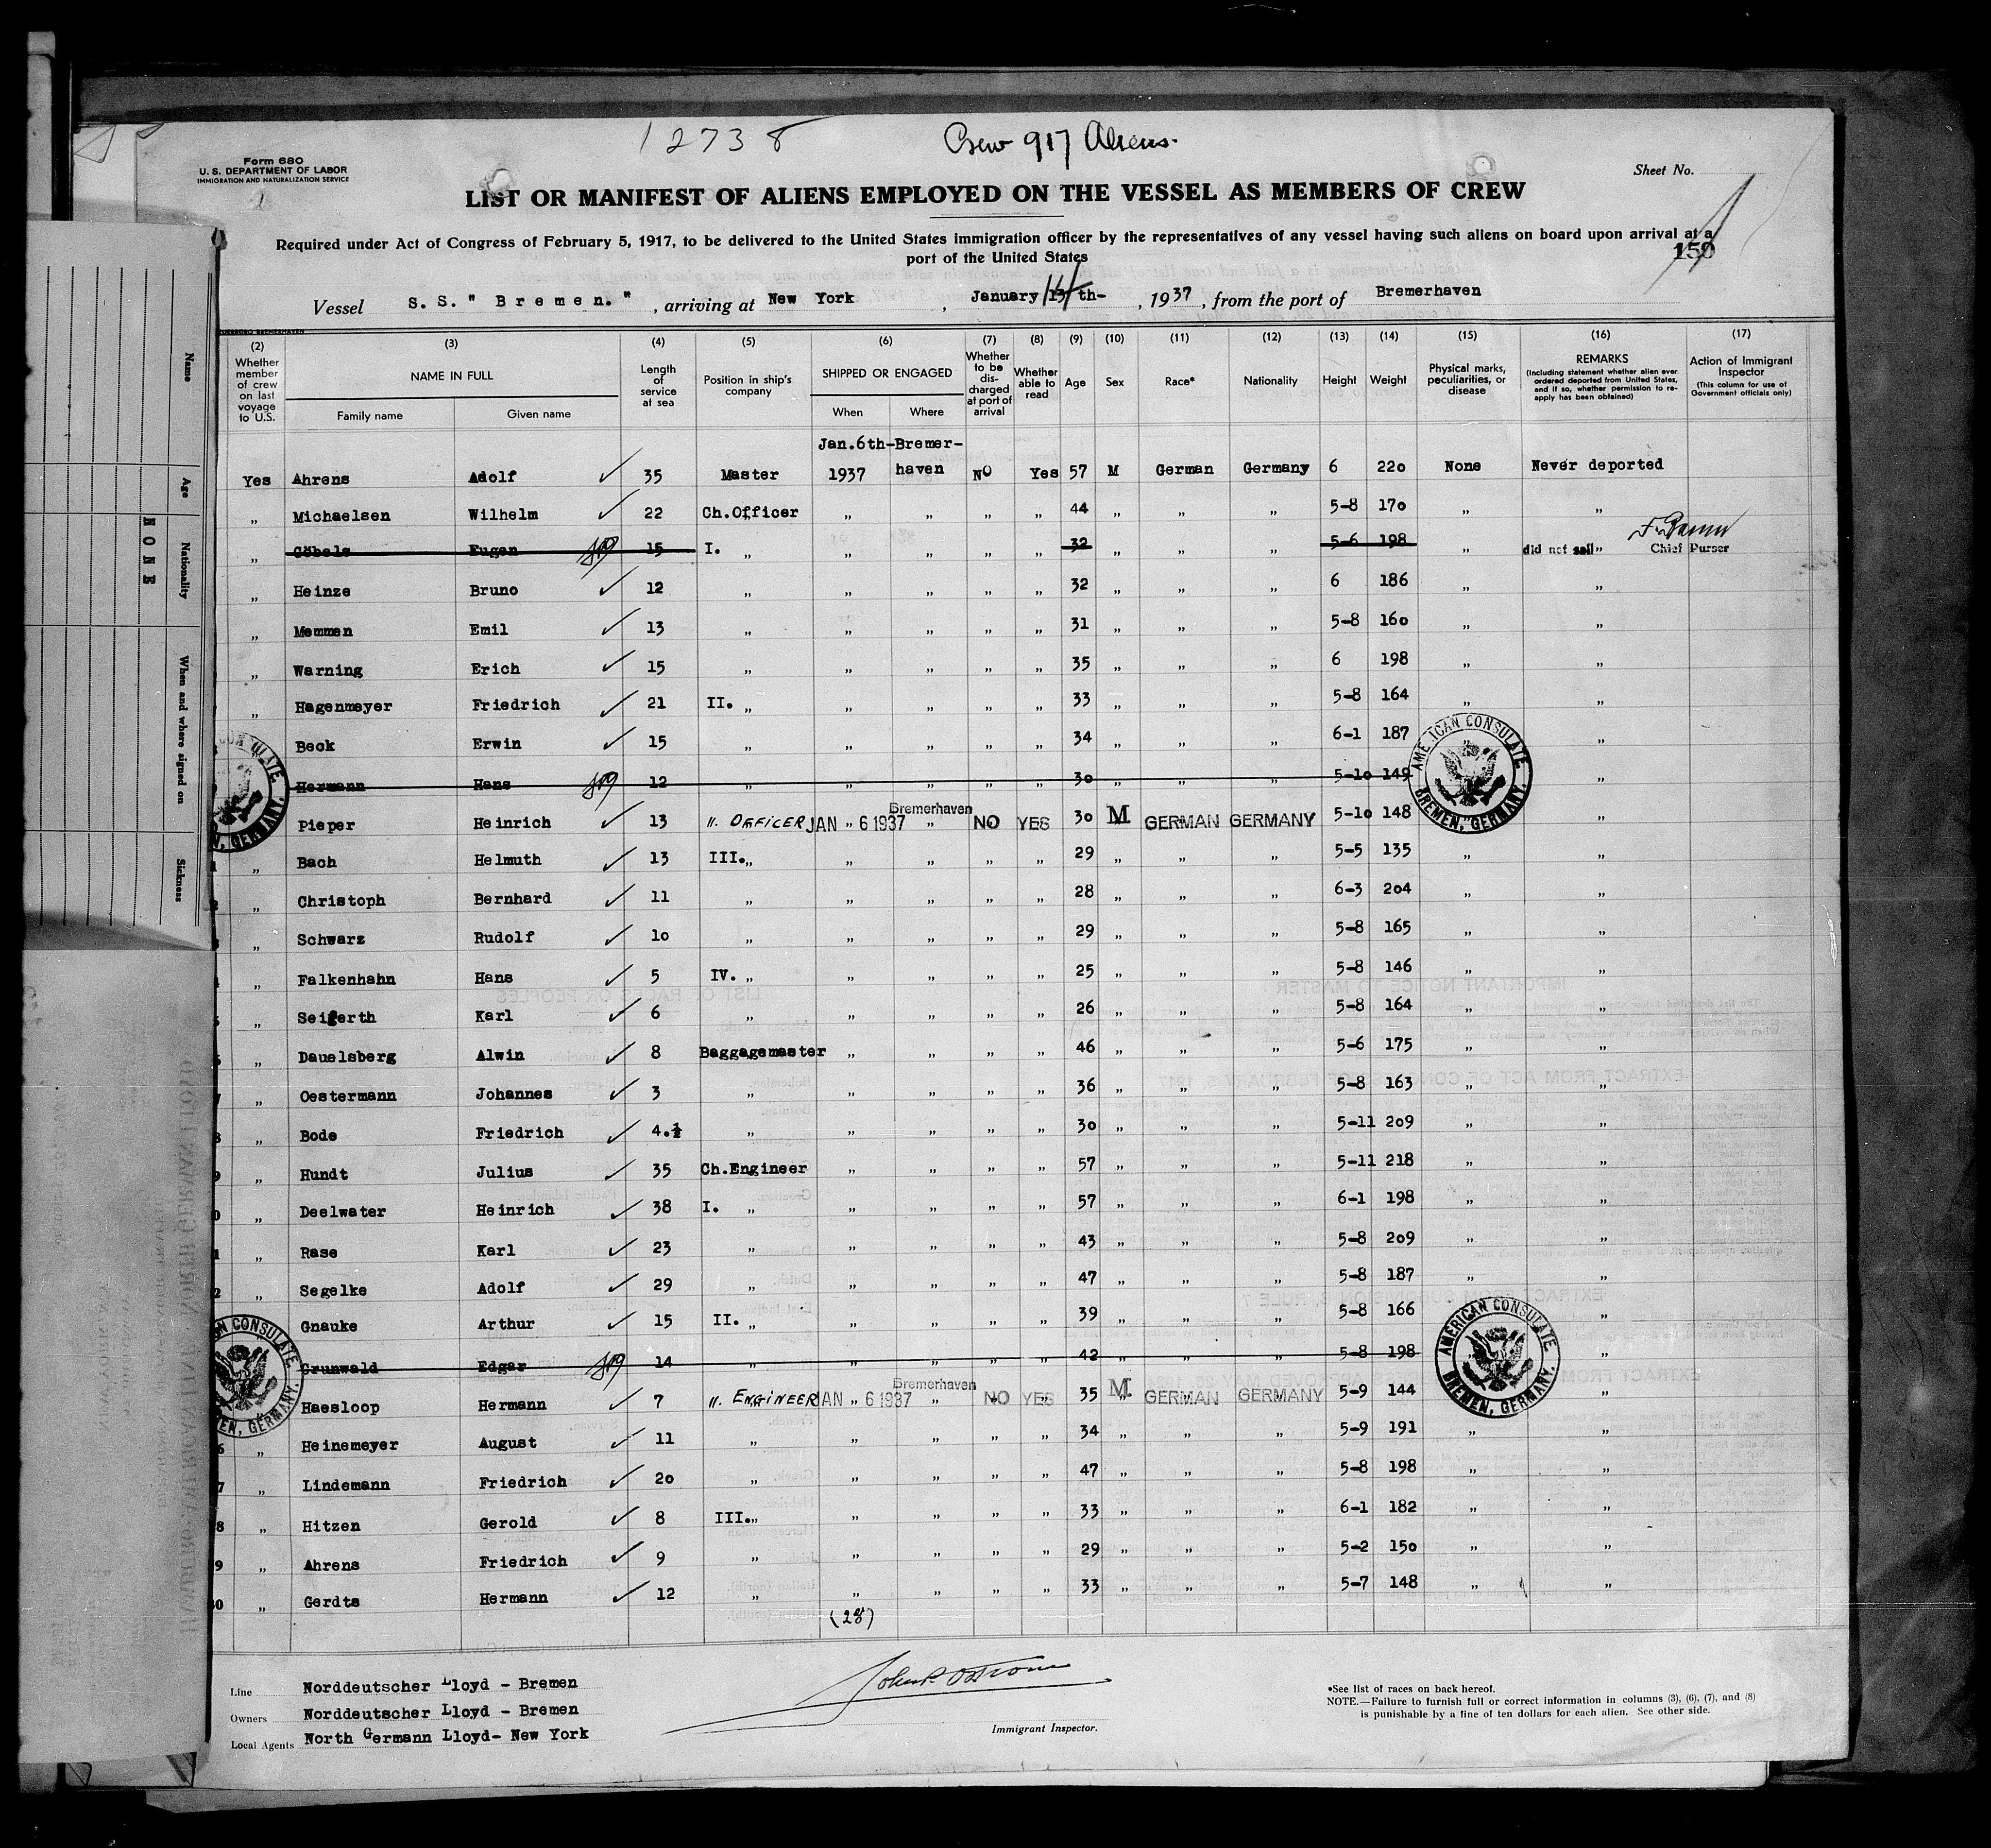 12738
Crew 917 Aliens.
Form 680
U. S. DEPARTMENT OF LABOR
IMMIGRATION AND NATURALIZATION SERVICE
Sheet No.
LIST OR MANIFEST OF ALIENS EMPLOYED ON THE VESSEL AS MEMBERS OF CREW
Required under Act of Congress of February 5, 1917, to be delivered to the United States immigration officer by the representatives of any vessel having such aliens on board upon arrival at a
port of the United States
150
Vessel S.S. " Bremen. " , arriving at New York , January 14 th- , 1937 , from the port of Bremerhaven
(2) (3) (4) (5) (6) (7) (8) (9) (10) (11) (12) (13) (14) (15) (16) (17)
Whether member of crew on last voyage to U.S.
NAME IN FULL
Family name Given name
Length of service at sea
Position in ship's company
SHIPPED OR ENGAGED
When Where
Whether to be discharged at port of arrival
Whether able to read
Age
Sex
Race*
Nationality
Height
Weight
Physical marks, peculiarities, or disease
REMARKS
(Including statement whether alien ever ordered deported from United States, and if so, whether permission to re-apply has been obtained)
Action of Immigrant Inspector
(This column for use of Government officials only)
Jan.6th-Bremer-
Yes Ahrens Adolf ✓ 35 Master 1937 haven No Yes 57 M German Germany 6 220 None Never deported
„ Michaelsen Wilhelm ✓ 22 Ch.Officer „ „ „ „ 44 „ „ „ 5-8 170 „ „
„ Göbels Eugen 15 I. „ „ „ „ „ 32 „ „ „ 5-6 198 „ did not sail „ Chief Purser
„ Heinze Bruno ✓ 12 „ „ „ „ „ 32 „ „ „ 6 186 „ „
„ Memmen Emil ✓ 13 „ „ „ „ „ 31 „ „ „ 5-8 160 „ „
„ Warning Erich ✓ 15 „ „ „ „ „ 35 „ „ „ 6 198 „ „
„ Hagenmeyer Friedrich ✓ 21 II. „ „ „ „ „ 33 „ „ „ 5-8 164 „ „
„ Beck Erwin ✓ 15 „ „ „ „ „ 34 „ „ „ 6-1 187 „ „
Hermann Hans 12 „ „ „ „ „ 30 „ „ „ 5-10 149 „
Pieper Heinrich ✓ 13 II. OFFICER JAN 6 1937 Bremerhaven NO YES 30 M GERMAN GERMANY 5-10 148 „
„ Bach Helmuth ✓ 13 III. „ „ „ „ „ 29 „ „ „ 5-5 135 „ „
„ Christoph Bernhard ✓ 11 „ „ „ „ „ 28 „ „ „ 6-3 204 „ „
„ Schwarz Rudolf ✓ 10 „ „ „ „ „ 29 „ „ „ 5-8 165 „ „
„ Falkenhahn Hans ✓ 5 IV. „ „ „ „ „ 25 „ „ „ 5-8 146 „ „
„ Seiferth Karl ✓ 6 „ „ „ „ „ 26 „ „ „ 5-8 164 „ „
„ Dauelsberg Alwin ✓ 8 Baggagemaster „ „ „ „ 46 „ „ „ 5-6 175 „ „
„ Oestermann Johannes ✓ 3 „ „ „ „ „ 36 „ „ „ 5-8 163 „ „
„ Bode Friedrich ✓ 4.½ „ „ „ „ „ 30 „ „ „ 5-11 209 „ „
„ Hundt Julius ✓ 35 Ch.Engineer „ „ „ „ 57 „ „ „ 5-11 218 „ „
„ Deelwater Heinrich ✓ 38 I. „ „ „ „ „ 57 „ „ „ 6-1 198 „ „
„ Rase Karl ✓ 23 „ „ „ „ „ 43 „ „ „ 5-8 209 „ „
„ Segelke Adolf ✓ 29 „ „ „ „ „ 47 „ „ „ 5-8 187 „ „
Gnauke Arthur ✓ 15 II. „ „ „ „ „ 39 „ „ „ 5-8 166 „
Grunwald Edgar 14 „ „ „ „ „ 42 „ „ „ 5-8 198 „
Haesloop Hermann ✓ 7 II. ENGINEER JAN 6 1937 Bremerhaven NO YES 35 M GERMAN GERMANY 5-9 144 „
„ Heinemeyer August ✓ 11 „ „ „ „ „ 34 „ „ „ 5-9 191 „ „
„ Lindemann Friedrich ✓ 20 „ „ „ „ „ 47 „ „ „ 5-8 198 „ „
„ Hitzen Gerold ✓ 8 III. „ „ „ „ „ 33 „ „ „ 6-1 182 „ „
„ Ahrens Friedrich ✓ 9 „ „ „ „ „ 29 „ „ „ 5-2 150 „ „
„ Gerdts Hermann ✓ 12 „ „ „ „ „ 33 „ „ „ 5-7 148 „ „
(28)
AMERICAN CONSULATE
BREMEN, GERMANY.
AMERICAN CONSULATE
BREMEN, GERMANY.
Line Norddeutscher Lloyd - Bremen
Owners Norddeutscher Lloyd - Bremen
Local Agents North Germann Lloyd- New York
Immigrant Inspector.
*See list of races on back hereof.
NOTE.—Failure to furnish full or correct information in columns (3), (6), (7), and (8)
is punishable by a fine of ten dollars for each alien. See other side.
Name
Age
Nationality
When and where signed on
Sickness
NONE